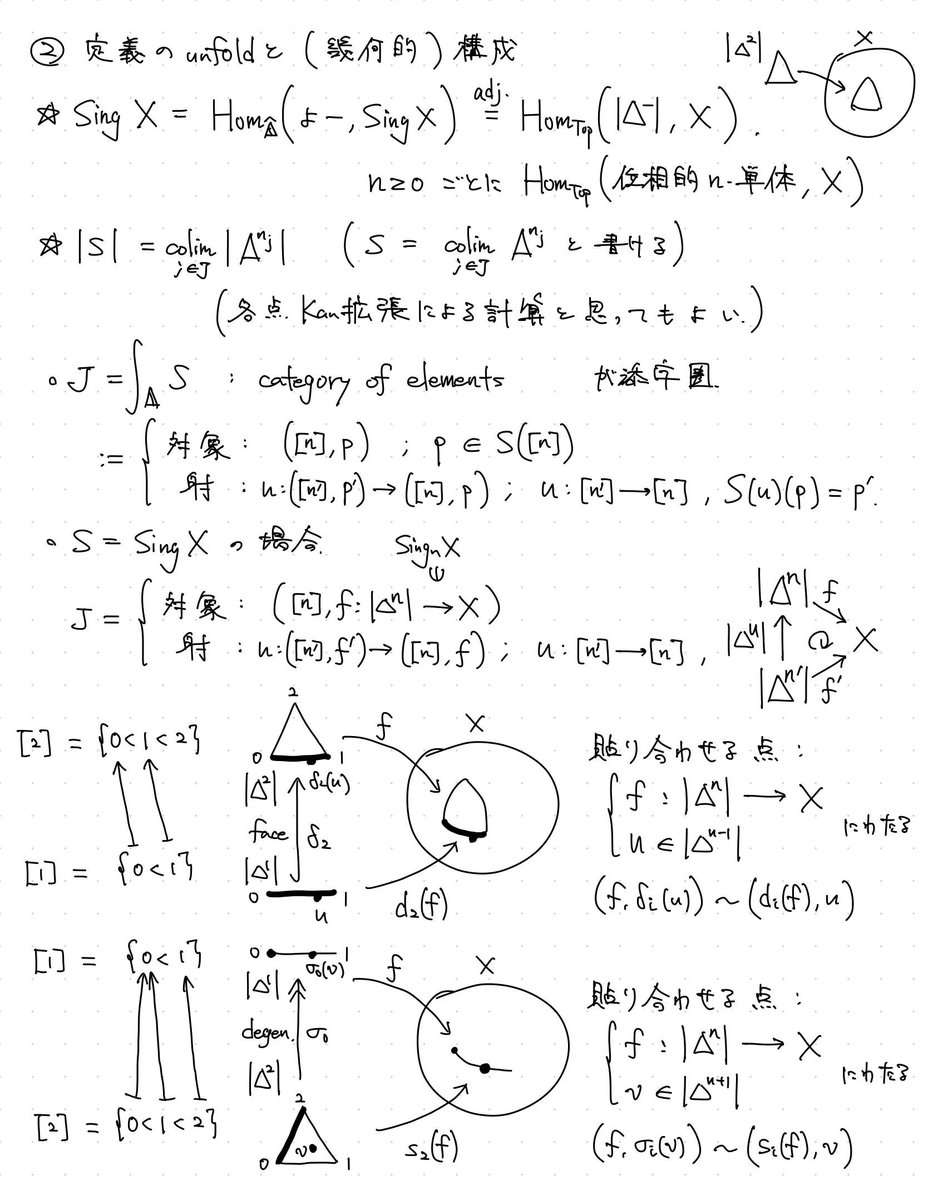 ② 定義の unfold と (幾何的) 構成
|Δ²| X
☆ Sing X = Hom_Δ̂(よ-, Sing X) adj. = Hom_Top(|Δ⁻|, X).
n≥0 ごとに Hom_Top(位相的 n-単体, X)
☆ |S| = colim_{j∈J} |Δ^{nj}| (S = colim_{j∈J} Δ^{nj} と書ける)
(各点 Kan拡張による計算と思ってもよい.)
∘ J = ∫_Δ S : category of elements が添字圏.
:= { 対象 : ([n], p) ; p ∈ S([n])
射 : u:([n'], p') → ([n], p) ; u : [n'] → [n] , S(u)(p) = p'.
∘ S = Sing X の場合. Sing_n X
J = { 対象 : ([n], f : |Δⁿ| → X)
射 : u:([n'], f') → ([n], f) ; u : [n'] → [n] ,
|Δⁿ| f
|Δᵘ| X
|Δⁿ'| f'
[2] = {0<1<2}
2
0 1
|Δ²| δ₂(u)
face δ₂
|Δ¹|
0 1
u
[1] = {0<1}
f X
d₂(f)
貼り合わせる点 :
{ f : |Δⁿ| → X
u ∈ |Δⁿ⁻¹|
にわたる
(f, δᵢ(u)) ~ (dᵢ(f), u)
[1] = {0<1}
0 1
|Δ¹| σ₀(v)
degen. σ₀
|Δ²|
2
0 v 1
[2] = {0<1<2}
f X
s₂(f)
貼り合わせる点 :
{ f : |Δⁿ| → X
v ∈ |Δⁿ⁺¹|
にわたる
(f, σᵢ(v)) ~ (sᵢ(f), v)